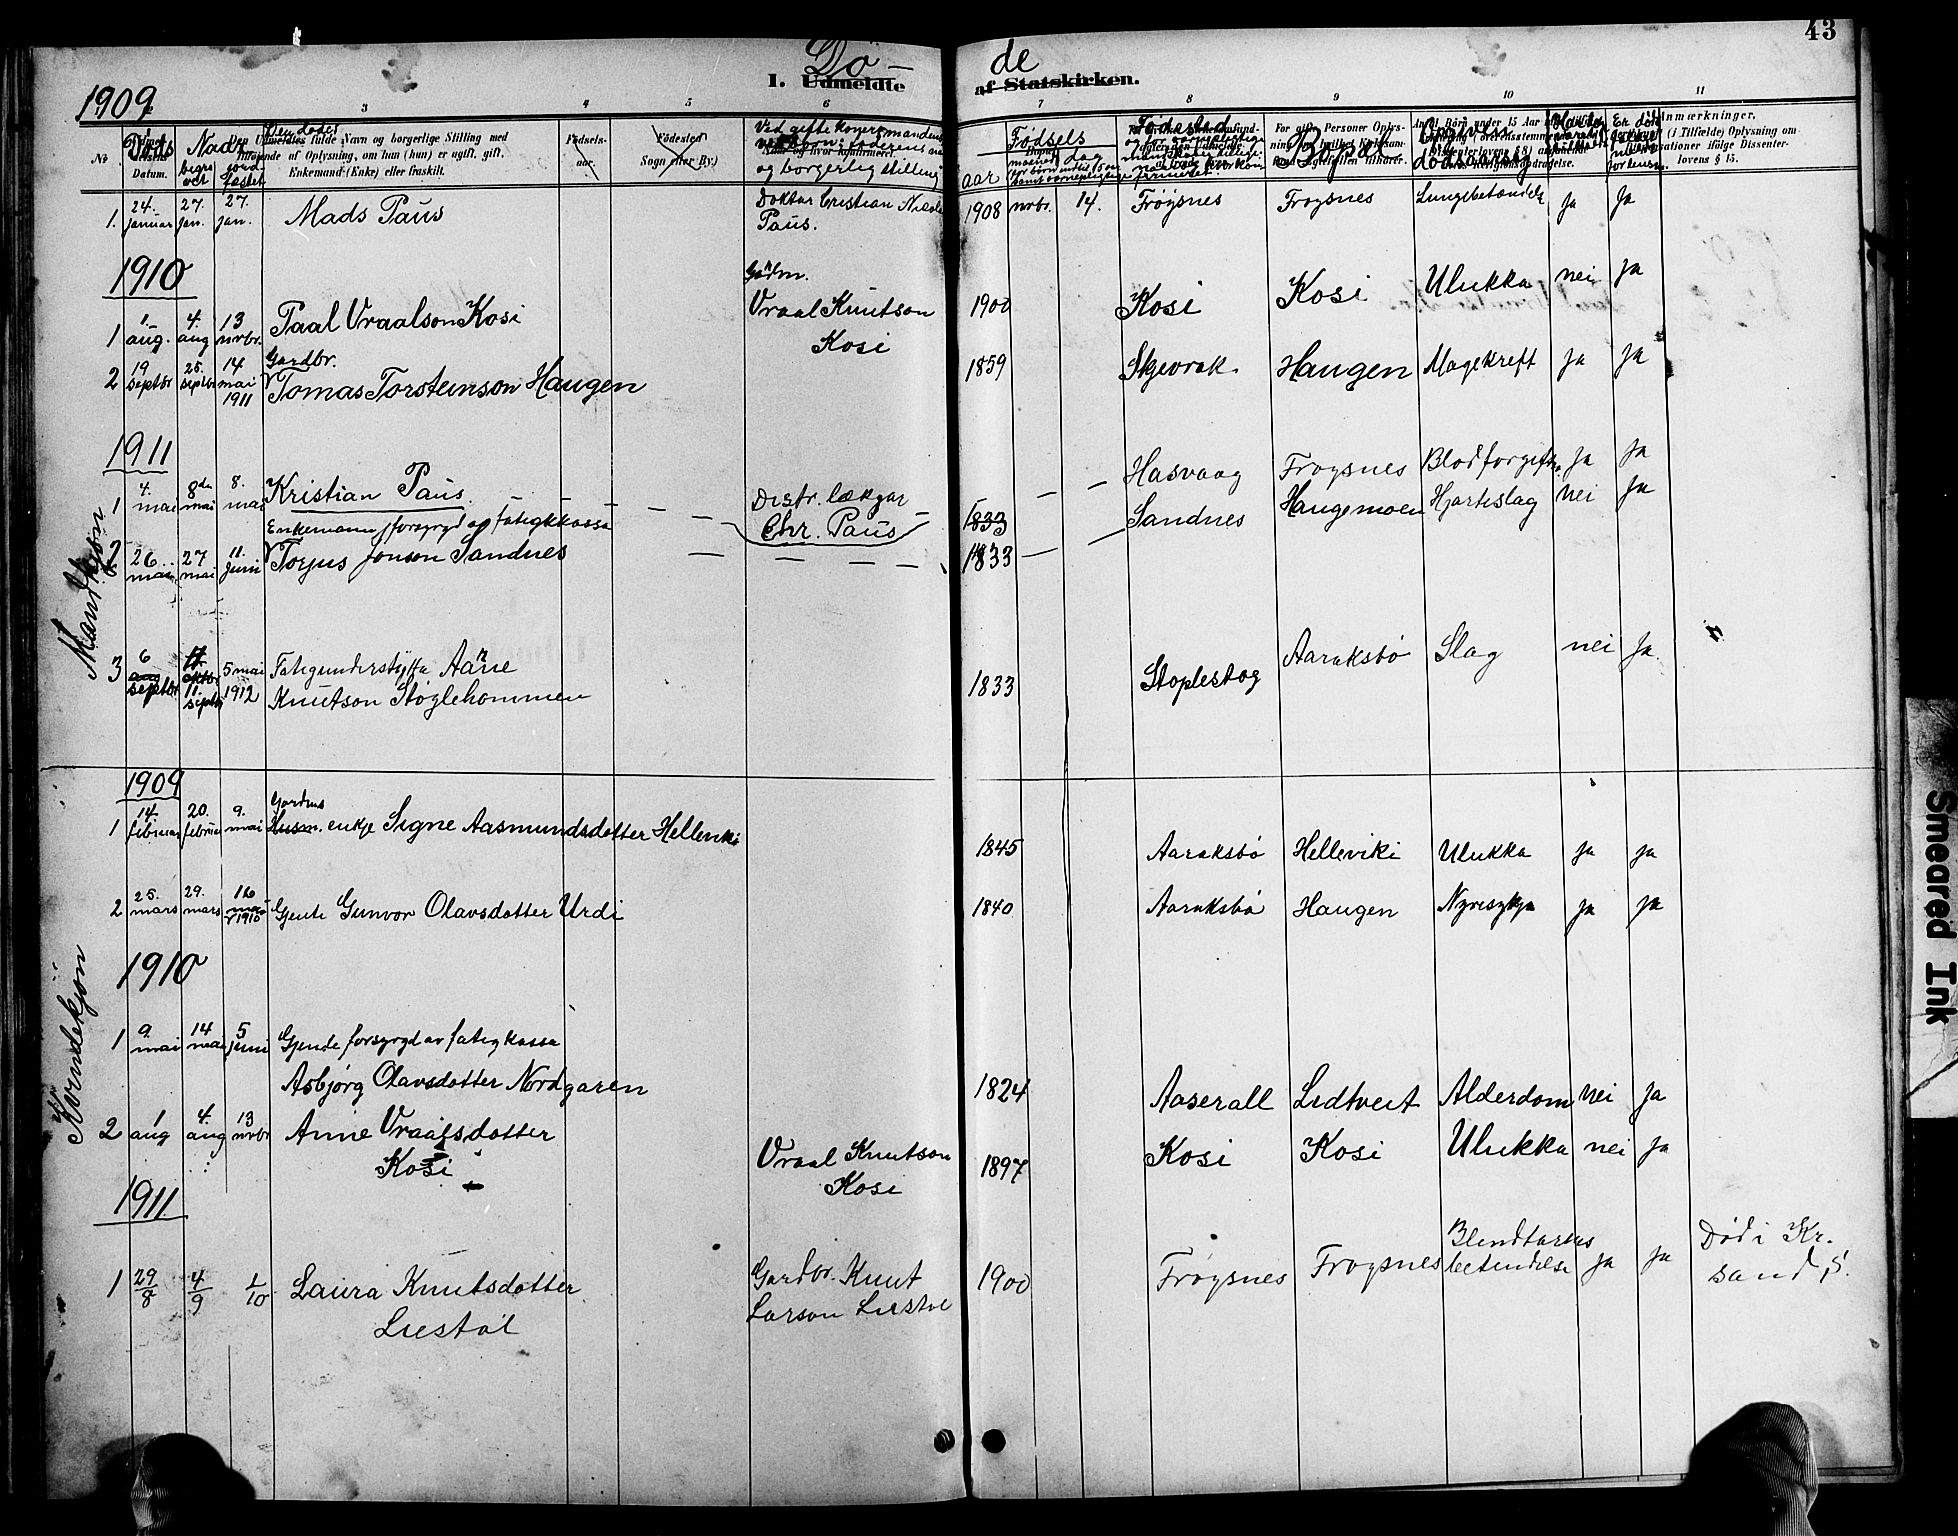 43
Dö — de
I. Udmeldte af Statskirken.
1909
3 4 5 6 7 8 9 10 11
No Døds Datum. Navn og borgerlige Stilling med
Oplysning, om han (hun) er ugift, gift,
Enkemand (Enke) eller fraskilt.
Fødsels- aar.
Fødested
Sogn eller By).
Ved gifte koner mandens
og borgerlig stilling
Fødsels
aar dag
Fødested
Bopæl
dødsaarsag
Anmærkninger.
(i Tilfælde) Oplysning om
lovens § 15.
1. 24. januar 27. jan. 27. jan. Mads Paus Doktar Cristian Nicolai Paus. 1908 nvbr. 14. Frøysnes Froysnes Lungebetændelse ja ja
1910
1 1. aug. 4. aug 13 nvbr. Paal Vraalson Kosi Gardm. Vraal Knutson Kosi 1900 Kosi Kosi Ulukka nei ja
2 19 septbr 25. septbr 14 mai 1911 Gardbr. Tomas Torsteinson Haugen 1859 Skjevrak Haugen Magekreft ja ja
1911
1 4. mai 8de mai 8. mai Kristian Paus. Distr. lækjar Chr. Paus 1833 Hasvaag Froysnes Blodforgiftn. ja ja
Enkemann forsyrgd af fatigkkassa
2 26. mai 27 mai 11. juni Torjus Jonson Sandnes 1833 Sandnes Haugemoen Hjarteslag nei ja
3 6 aug septbr oktbr 11. septbr 5 mai 1912 Fatigunderstytta Aane
Knutson Stoglehommen 1833 Stoplestog Aaraksbø Slag nei ja
Mandkjøn
1909
1 14. februar 20. februar 9. mai Gardms Husm. enkje Signe Aasmundsdotter Helleviki 1845 Aaraksbø Helleviki Ulukka ja ja
2 25. mars 29. mars 16 mai 1910 Gjente Gunvor Olavsdotter Urdi 1840 Aaraksbø Haugen Nyresykja ja ja
Kvindekjøn
1910
1 9. mai 14 mai 5 juni Gjente forsyrgd av fatigkassa
Asbjörg Olavsdotter Nordgaren 1824 Aaserall Lidtveit Alderdom nei ja
2 1 aug 4. aug 13 nvbr Anne Vraalsdotter
Kosi Vraal Knutson Kosi 1897 Kosi Kosi Ulukka nei ja
1911
1 29/8 4/9 1/10 Laura Knutsdotter
Liestøl Gardbr. Knut Larson Liestøl 1900 Frøysnes Froysnes Blindtarms betendelse ja ja Død i Kr. sand S.
Smeared Ink